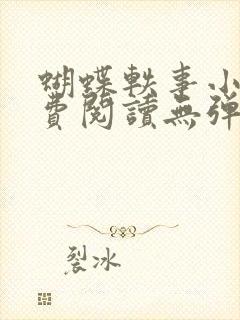 蝴蝶軼事小
費閱讀無彈
裂冰